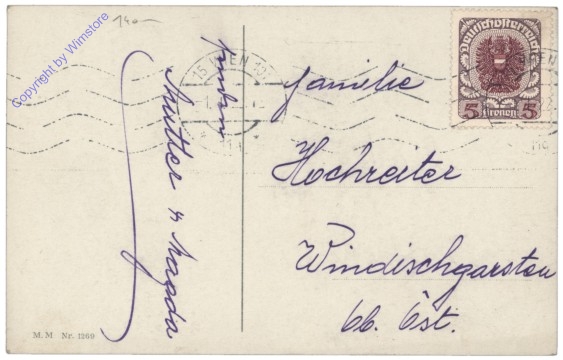 Copyright by Wimstore
140—
Mutter & Magda
M. M Nr. 1269
15 WIEN 101
Deutschösterreich
5 5
Kronen
Familie
Hochreiter
Windischgarsten
Ob. Öst.